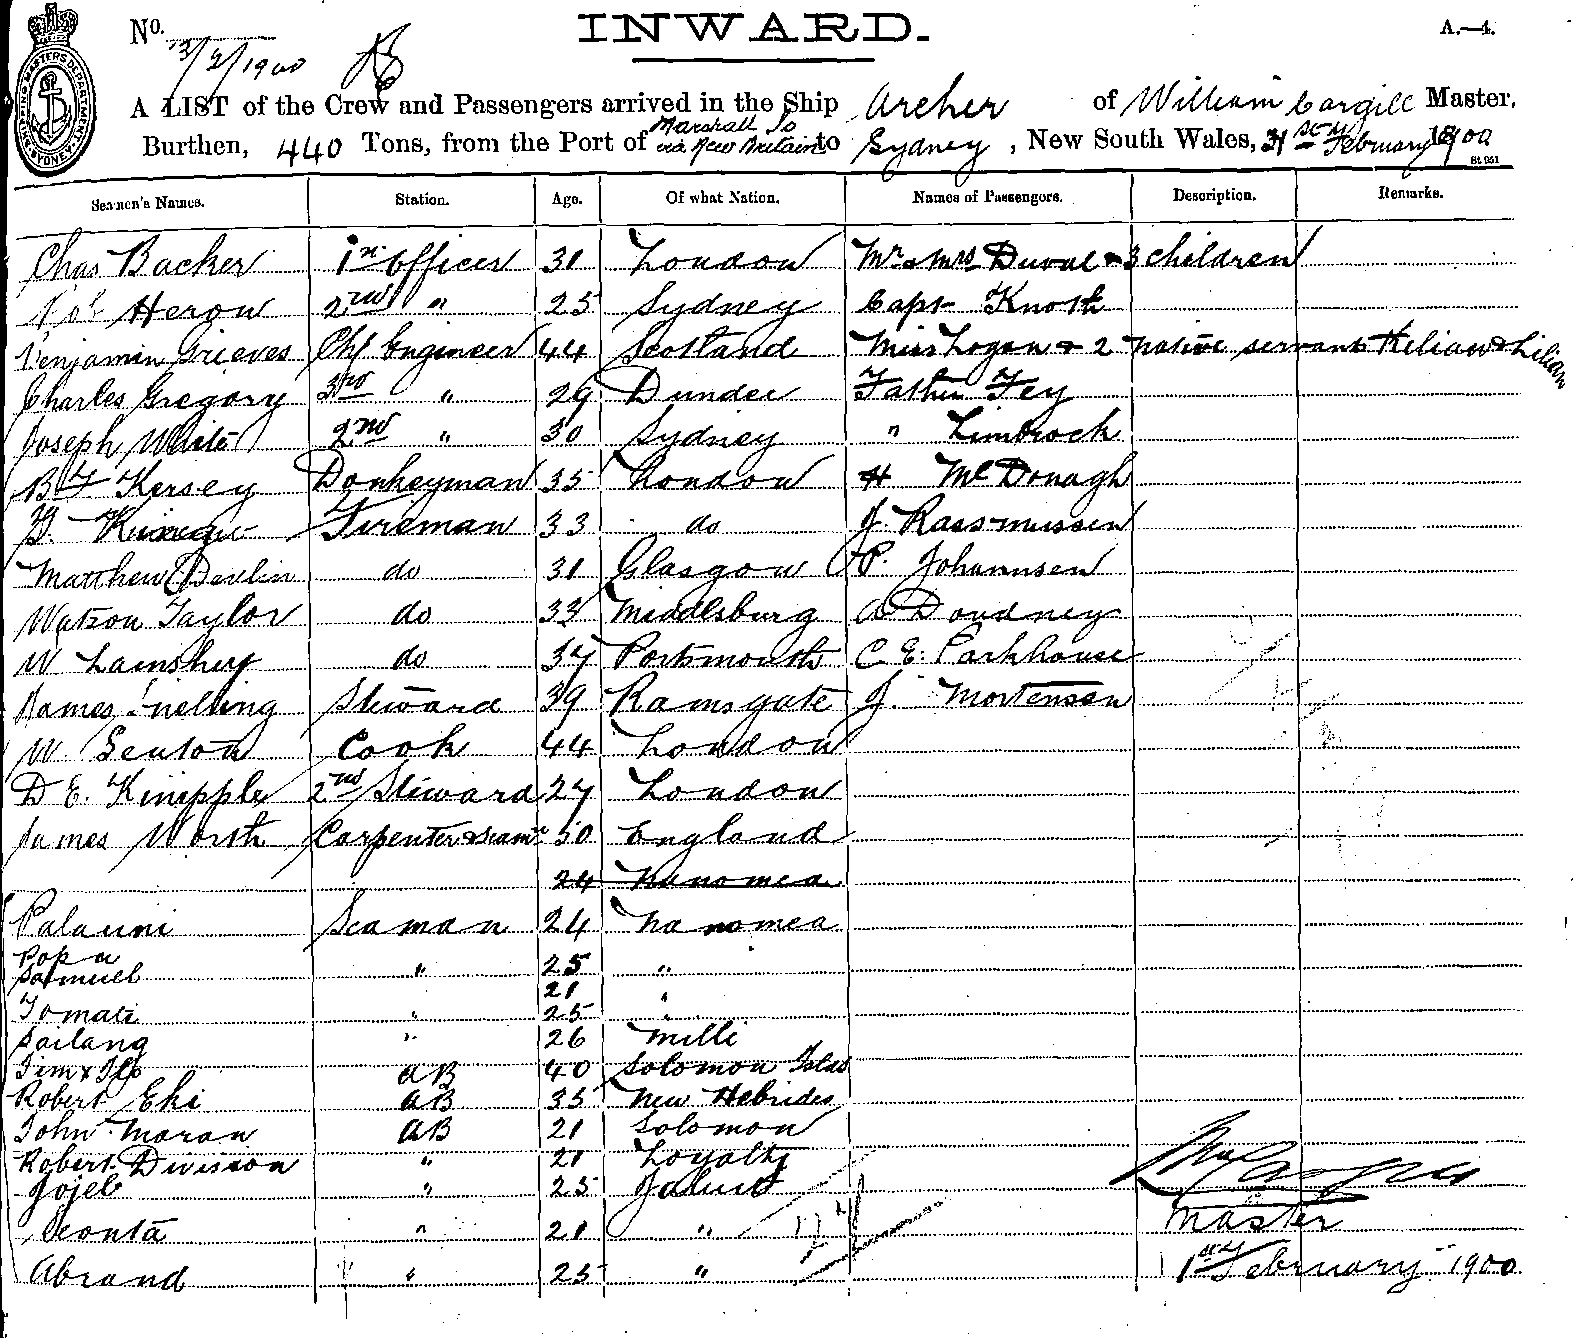 No. 13/2/1900
INWARD.
A.—4.
A LIST of the Crew and Passengers arrived in the Ship Archer of William Cargill Master,
Burthen, 440 Tons, from the Port of Marshall Is via New Britain to Sydney, New South Wales, 1st February 1900
St 951
Seamen's Names. Station. Age. Of what Nation. Names of Passengers. Description. Remarks.
Chas Backer 1st Officer 31 London Mr & Mrs Duval & 3 children
Heron 2nd " 25 Sydney Capt Knoth
Benjamin Grieves Chf Engineer 44 Scotland Miss Logan & 2 native servants Kilian & Lilian
Charles Gregory 3rd " 29 Dundee Father Fey
Joseph White 2nd " 30 Sydney " Limbrock
B F Kersey Donkeyman 35 London H McDonagh
Fireman 33 do J. Rassmussen
Matthew Devlin do 31 Glasgow P. Johannsen
Watson Taylor do 33 Middlsburg A Doudney
W do 37 Portsmouth C. E. Parkhouse
James Snelling Steward 39 Ramsgate J. Mortensen
W. Senton Cook 44 London
D E. Knipple 2nd Steward 27 London
James Worth Carpenter & Seamn 50 England
24 Nanomea
Palauni Seaman 24 Nanomea
Popu " 25 "
Samuel 21 "
Tomati " 25 "
Sailang " 26 Milli
Jim AB 40 Solomon Islds
Robert Eki AB 35 New Hebrides
John Moran AB 21 Solomon
Robert Division " 21 Loyalty
Jojeb " 25 Jaluit
" 21 "
Master
Abrand " 25 "
1st February 1900